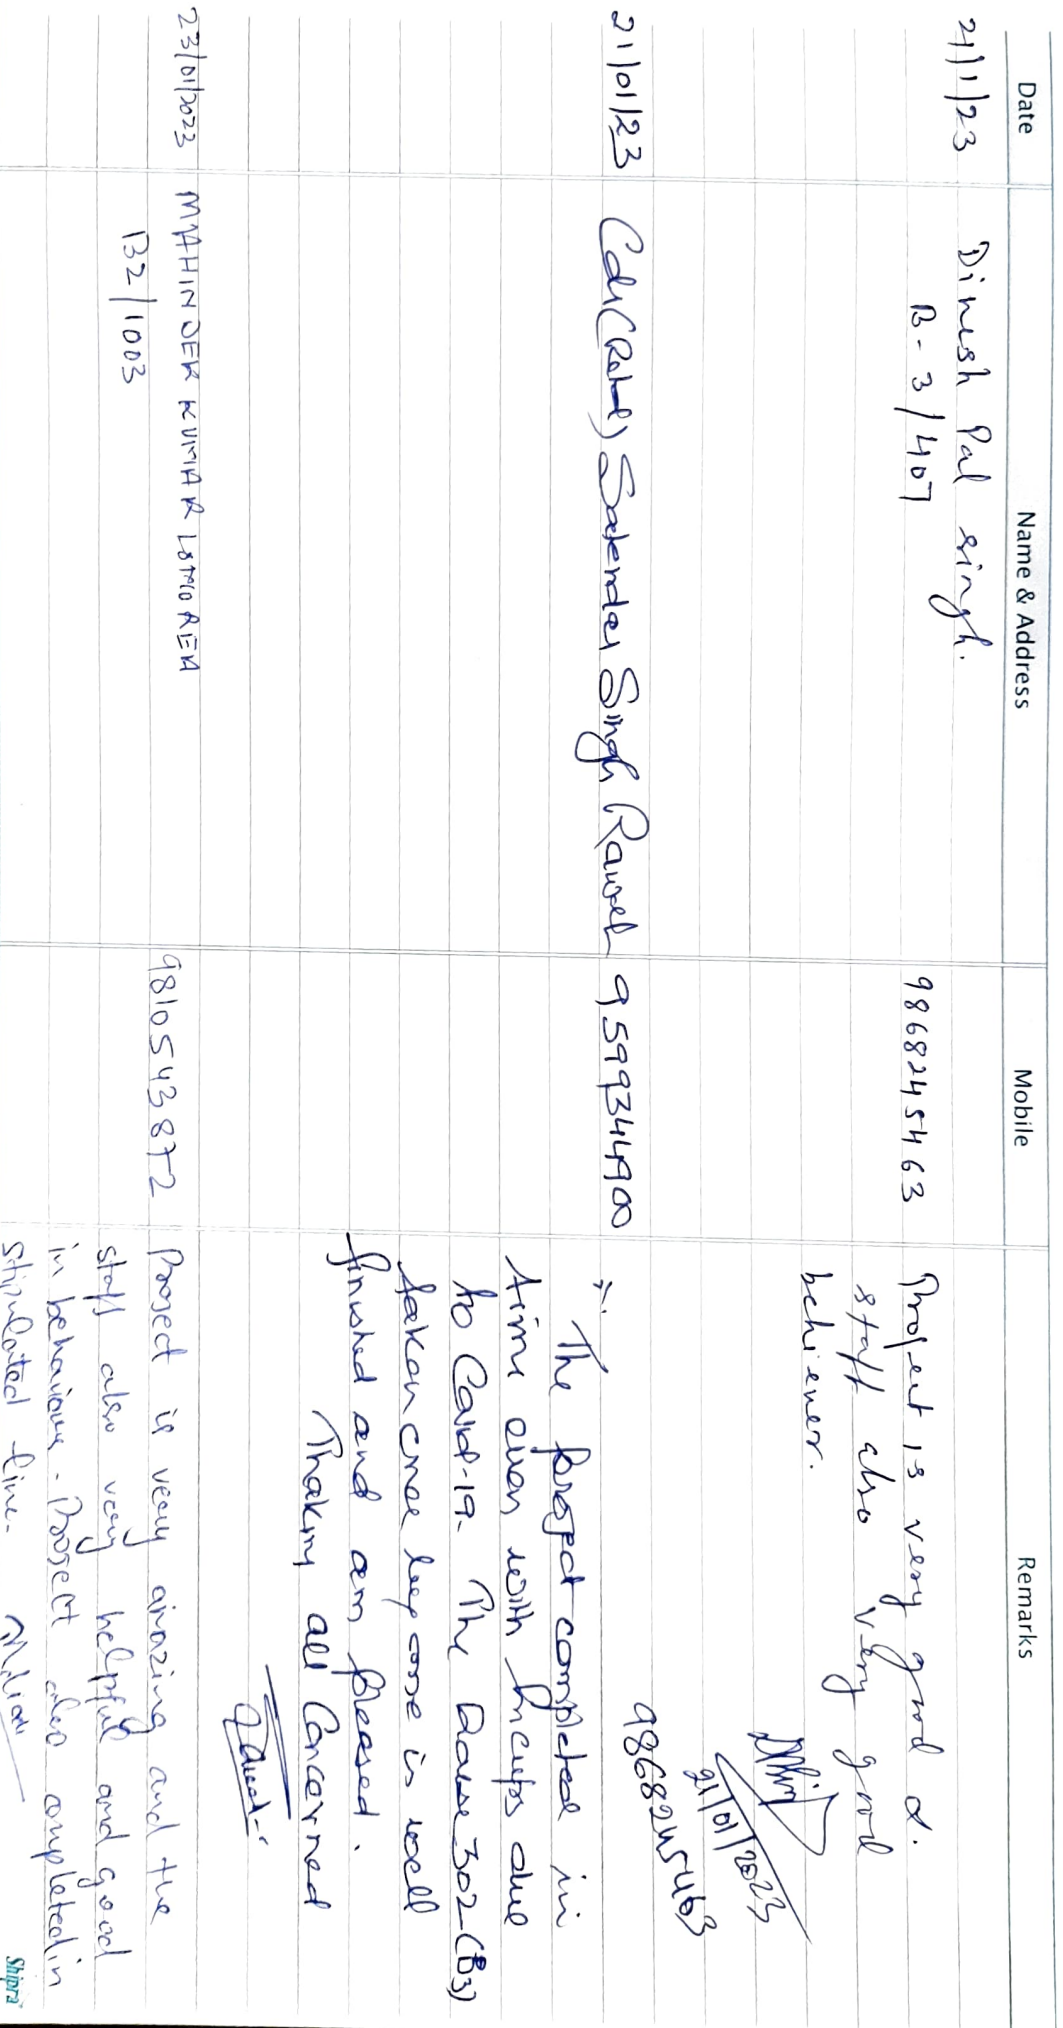 Date Name & Address Mobile Remarks
21/1/23 Dinesh Pal singh.
B-3/407 9868245463 Project is very good &
staff also very good
behiever.
21/01/2023
9868245463
21/01/23 Cdr(Retd) Satender Singh Rawat 9599344900 :-
The project completed in
time even with hicups due
to Covid-19. The House 302-(B3)
taken once is well
finished and am pleased.
Thaking all Concerned
23/01/2023 MAHINDER KUMAR
B2/1003 9810543872 Prosect is very amazing and the
staff also very helpful and good
in behaviour. Prosect also completed in
stipulated time.
Shipra